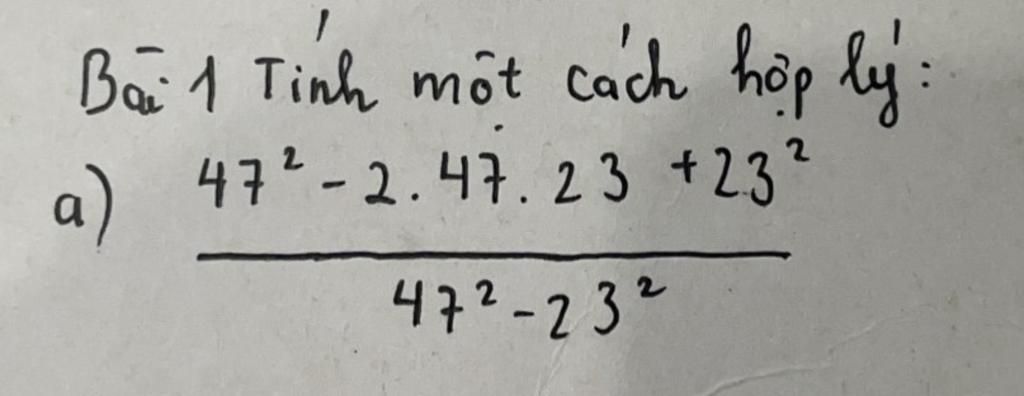 Bài 1 Tính một cách hợp lý:
a) 47² - 2. 47. 23 + 23²
47² - 23²